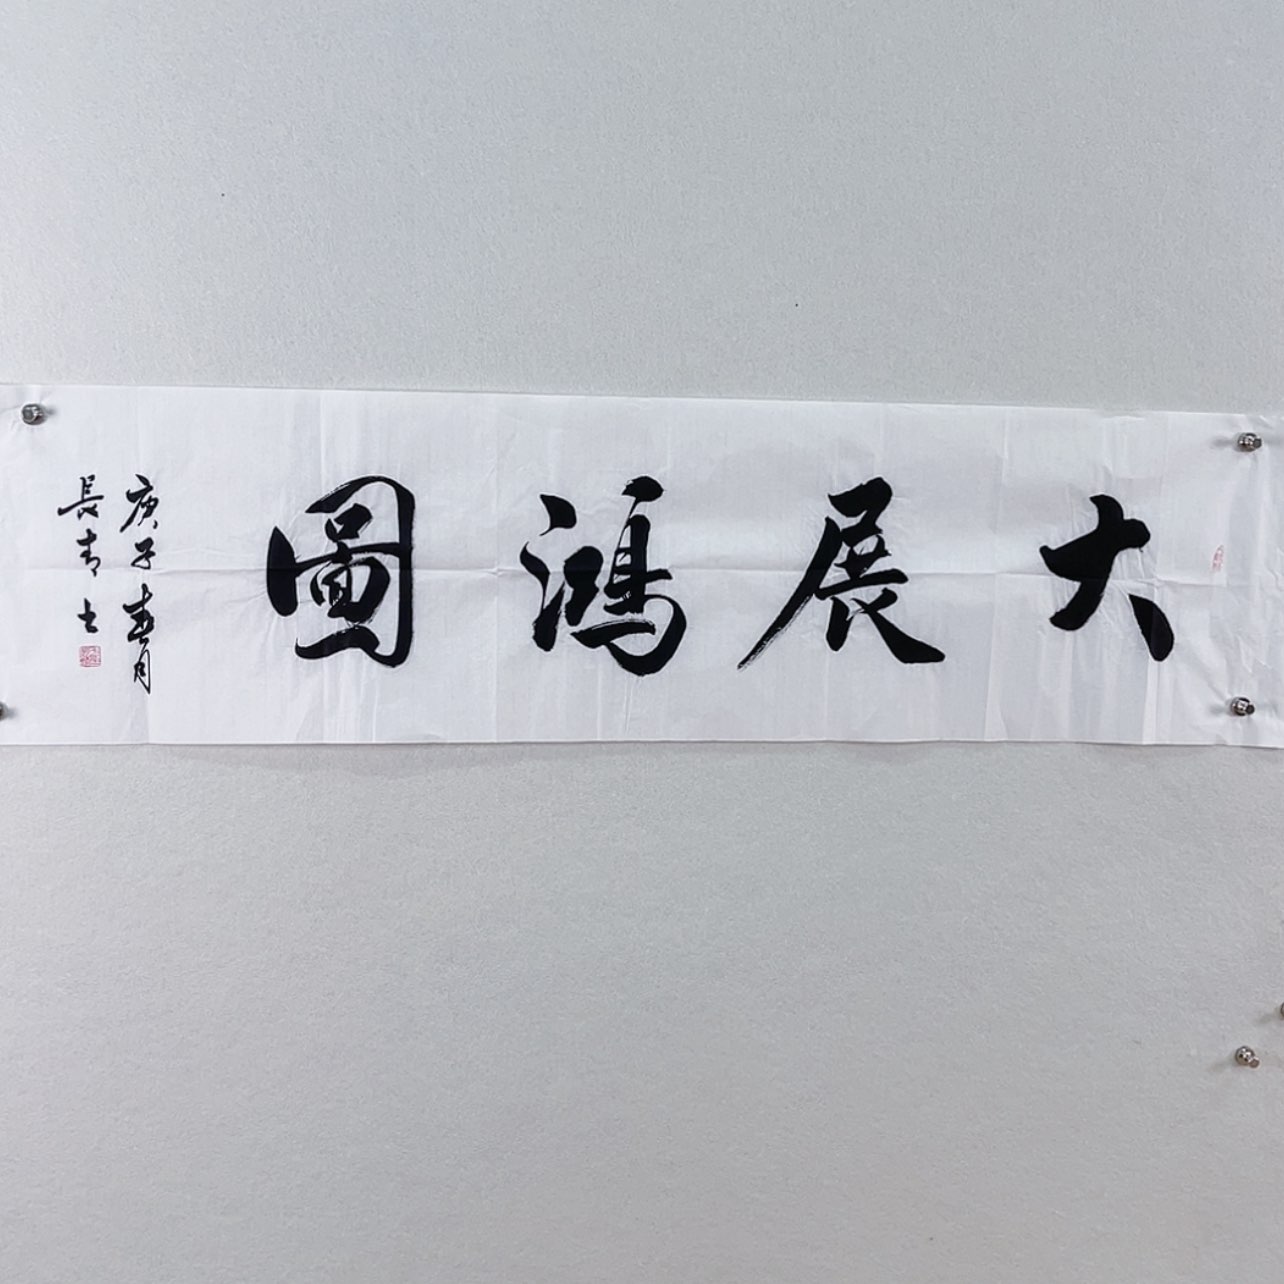 大展鴻圖
庚子春月
長青書